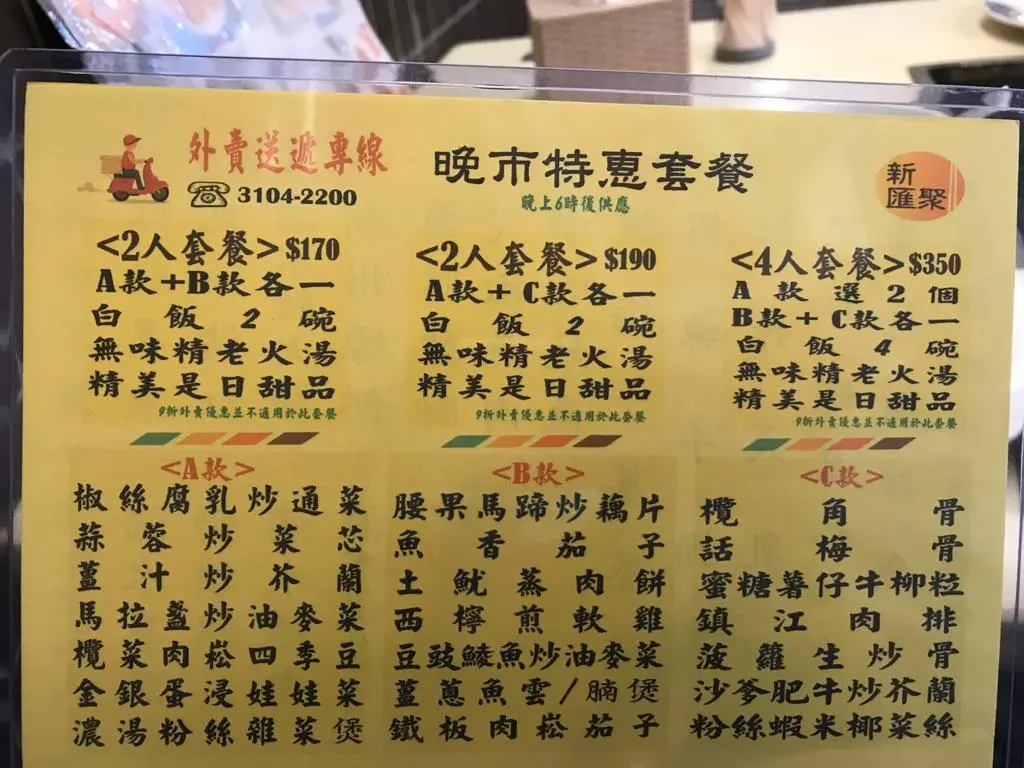 外賣送遞專線
3104-2200
晚市特惠套餐
晚上6時後供應
新
匯聚
<2人套餐>$170
A款+B款各一
白飯2碗
無味精老火湯
精美是日甜品
9折外賣優惠並不適用於此套餐
<2人套餐>$190
A款+C款各一
白飯2碗
無味精老火湯
精美是日甜品
9折外賣優惠並不適用於此套餐
<4人套餐>$350
A款選2個
B款+C款各一
白飯4碗
無味精老火湯
精美是日甜品
9折外賣優惠並不適用於此套餐
<A款>
椒絲腐乳炒通菜
蒜蓉炒菜芯
薑汁炒芥蘭
馬拉盞炒油麥菜
欖菜肉崧四季豆
金銀蛋浸娃娃菜
濃湯粉絲雜菜煲
<B款>
腰果馬蹄炒藕片
魚香茄子
土魷蒸肉餅
西檸煎軟雞
豆豉鯪魚炒油麥菜
薑蔥魚雲/腩煲
鐵板肉崧茄子
<C款>
欖角骨
話梅骨
蜜糖薯仔牛柳粒
鎮江肉排
菠蘿生炒骨
沙爹肥牛炒芥蘭
粉絲蝦米椰菜絲